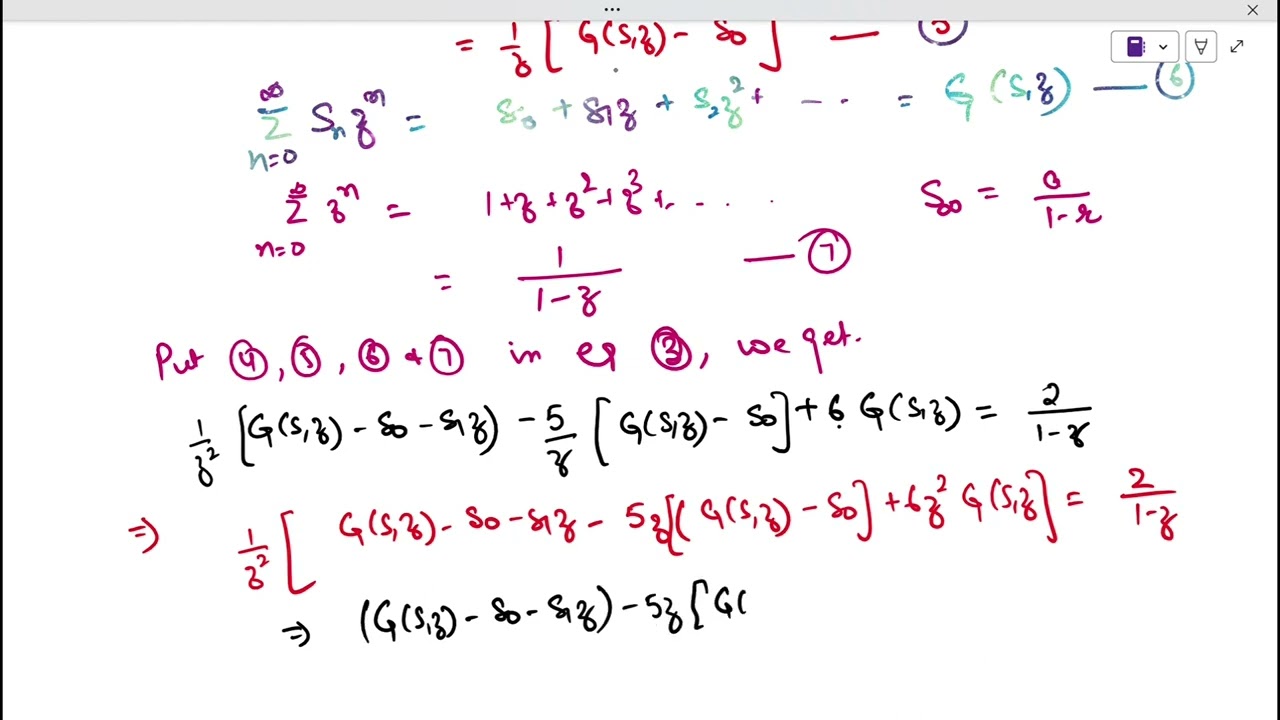 = 1/z [ G(S,z) - S0 ] — ⑤
∞ Σ n=0 Sn z^n = S0 + S1z + S2z² + ---- = G(S,z) — ⑥
∞ Σ n=0 z^n = 1+z+z²+z³+. . . . . S∞ = a/(1-r)
= 1/(1-z) — ⑦
Put ④, ⑤, ⑥ & ⑦ in eq ③, we get.
1/z² [G(S,z) - S0 - S1z) - 5/z [ G(S,z) - S0] + 6 G(S,z) = 2/(1-z)
⇒ 1/z² [ G(S,z) - S0 - S1z - 5z[(G(S,z) - S0] + 6z² G(S,z] = 2/(1-z)
⇒ (G(S,z) - S0 - S1z) - 5z [G(